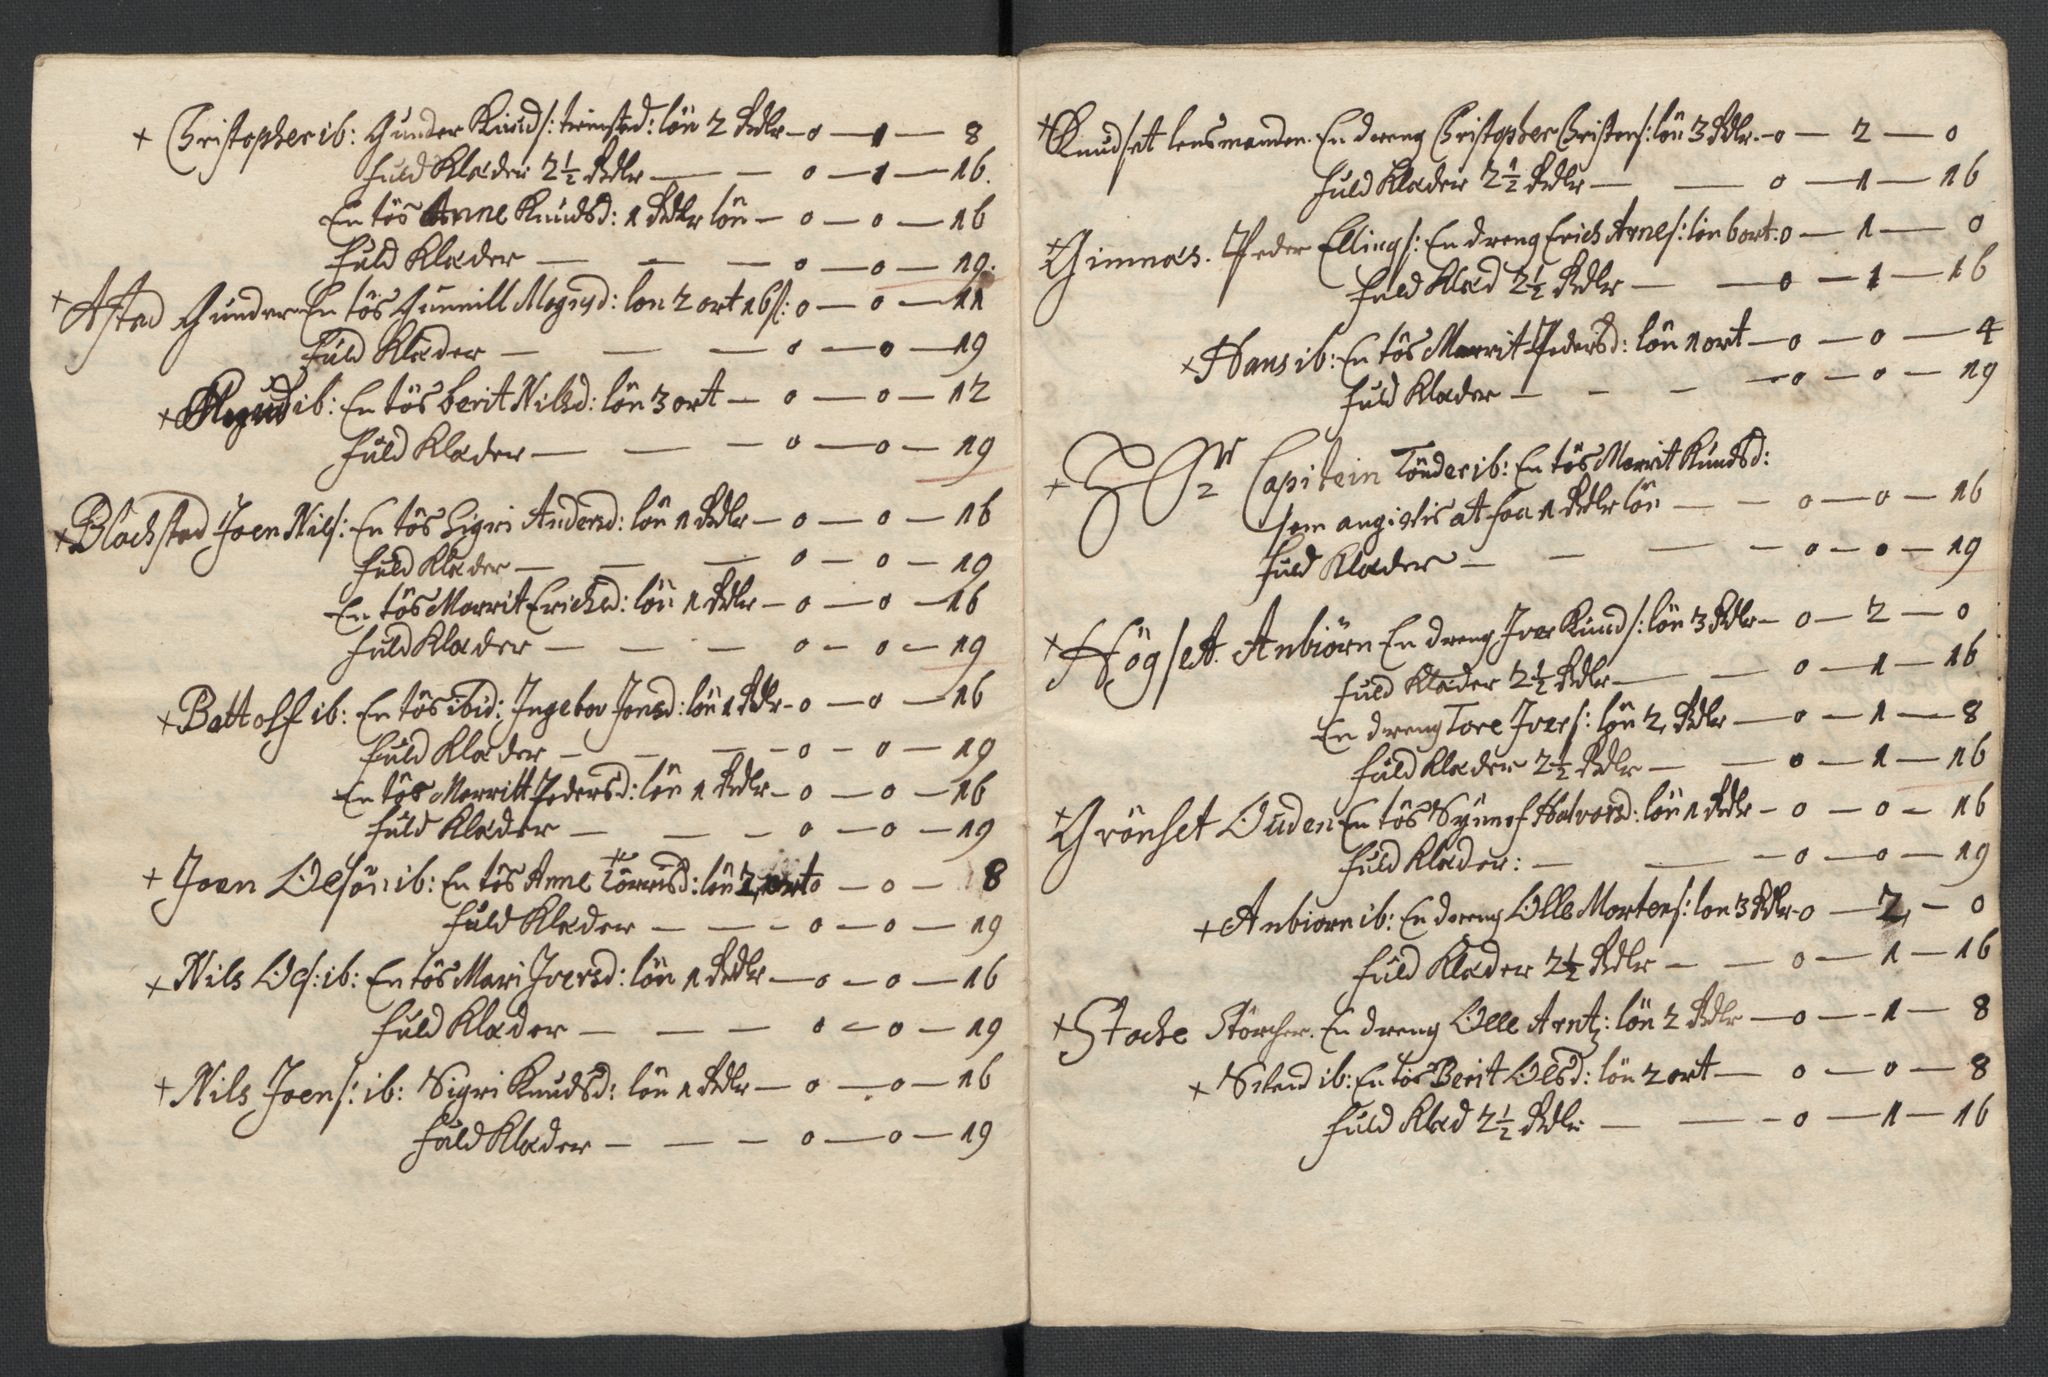 + Christopher ib: Gunder Knuds: lön 2 Rdlr – 0 – 1 – 8
fuld Klæder 2½ Rdlr – – 0 – 1 – 16.
En tös Anne Knudsd: 1 Rdlr lön – 0 – 0 – 16
fuld Klæder – – – 0 – 0 – 19.
+ Astad Gunder En tös Gunnill Mognsd: lon 2 ort 16 s: 0 – 0 – 11
fuld Klæder – – – 0 – 0 – 19
+ ib: En tös berit Nilsd: lön 3 ort – 0 – 0 – 12
fuld Klæder – – – 0 – 0 – 19
+ Blackstad Joen Nils: En tös Sigri Andersd: lön 1 Rdlr – 0 – 0 – 16
fuld Klæder – – – 0 – 0 – 19
En tös Marrit Erichsd: lön 1 Rdlr – 0 – 0 – 16
fuld Klæder – – – 0 – 0 – 19
+ Battolf ib: En tös ibid: Ingebor Jonsd: lön 1 Rdlr – 0 – 0 – 16
fuld Klæder – – – 0 – 0 – 19
En tös Marritt Pedersd: lön 1 Rdlr – 0 – 0 – 16
fuld Klæder – – – 0 – 0 – 19
+ Joen Olsön ib: En tös Anne Törrisd: lön 2 ort 0 – 0 – 8
fuld Klæder – – – 0 – 0 – 19
+ Nils Ols: ib: En tös Mari Iversd: lön 1 Rdlr – 0 – 0 – 16
fuld Klæder – – – 0 – 0 – 19
+ Nils Joens: ib: Sigri Knudsd: lön 1 Rdlr – 0 – 0 – 16
fuld Klæder – – – 0 – 0 – 19
+ Knudset lensmanden. En dreng Christopher Christens: lön 3 Rdlr. – 0 – 2 – 0
fuld Klæder 2½ Rdlr – – 0 – 1 – 16
+ Gimnæs. Peder Ellings: En dreng Erich Arnes: lön bort: 0 – 1 – 0
fuld Klæd 2½ Rdlr – – 0 – 1 – 16
+ Hans ib: En tös Marrit Pedersd: lön 1 ort – 0 – 0 – 4
fuld Klæder – – – 0 – 0 – 19
+ Hr Capitein Tönder ib: En tös Marrit Knudsd:
som angivis at faa 1 Rdlr lön – – 0 – 0 – 16
fuld Klæder – – – – 0 – 0 – 19
+ Högset. Anbiörn En dreng Iver Knuds: lön 3 Rdlr – 0 – 2 – 0
fuld Klæder 2½ Rdlr – – 0 – 1 – 16
En dreng Tore Ivers: lön 2, Rdlr – 0 – 1 – 8
fuld Klæder 2½ Rdlr – – 0 – 1 – 16
+ Grönset Ouden En tös Synnef Halvorsd: lön 1 Rdlr – 0 – 0 – 16
fuld Klæder: – – – 0 – 0 – 19
+ Anbiorn ib: En dreng Olle Mortens: lon 3 Rdlr – 0 – 2, – 0
fuld Klæder 2½ Rdlr – – 0 – 1 – 16
+ Stocke Störcher. En dreng Olle Arntz: lön 2 Rdlr – 0 – 1 – 8
+ ib: En tös Berit Olsd: lön 2 ort – 0 – 0 – 8
fuld Klæd 2½ Rdlr – – 0 – 1 – 16